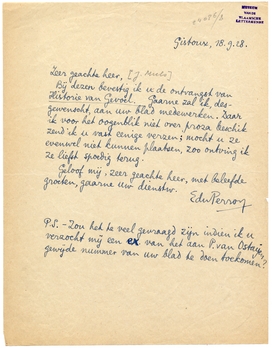 MUSEUM
VAN DE
VLAAMSCHE
LETTERKUNDE
Gistoux, 18.9.28.
Zeer geachte heer, [J. Meulo]
Bij dezen bevestig ik u de ontvangst van
Historie van Gevoel. Gaarne zal ik, des-
gewenscht, aan uw blad medewerken. Daar
ik voor het oogenblik niet over proza beschik
zend ik u vast eenige verzen; mocht u ze
evenwel niet kunnen plaatsen, zoo ontving ik
ze liefst spoedig terug.
Geloof mij, zeer geachte heer, met beleefde
groeten, gaarne uw dienstw.
EduPerron
P.S. - Zou het te veel gevraagd zijn indien ik u
verzocht mij een ex van het aan P. van Ostaijen
gewijde nummer van uw blad te doen toekomen?